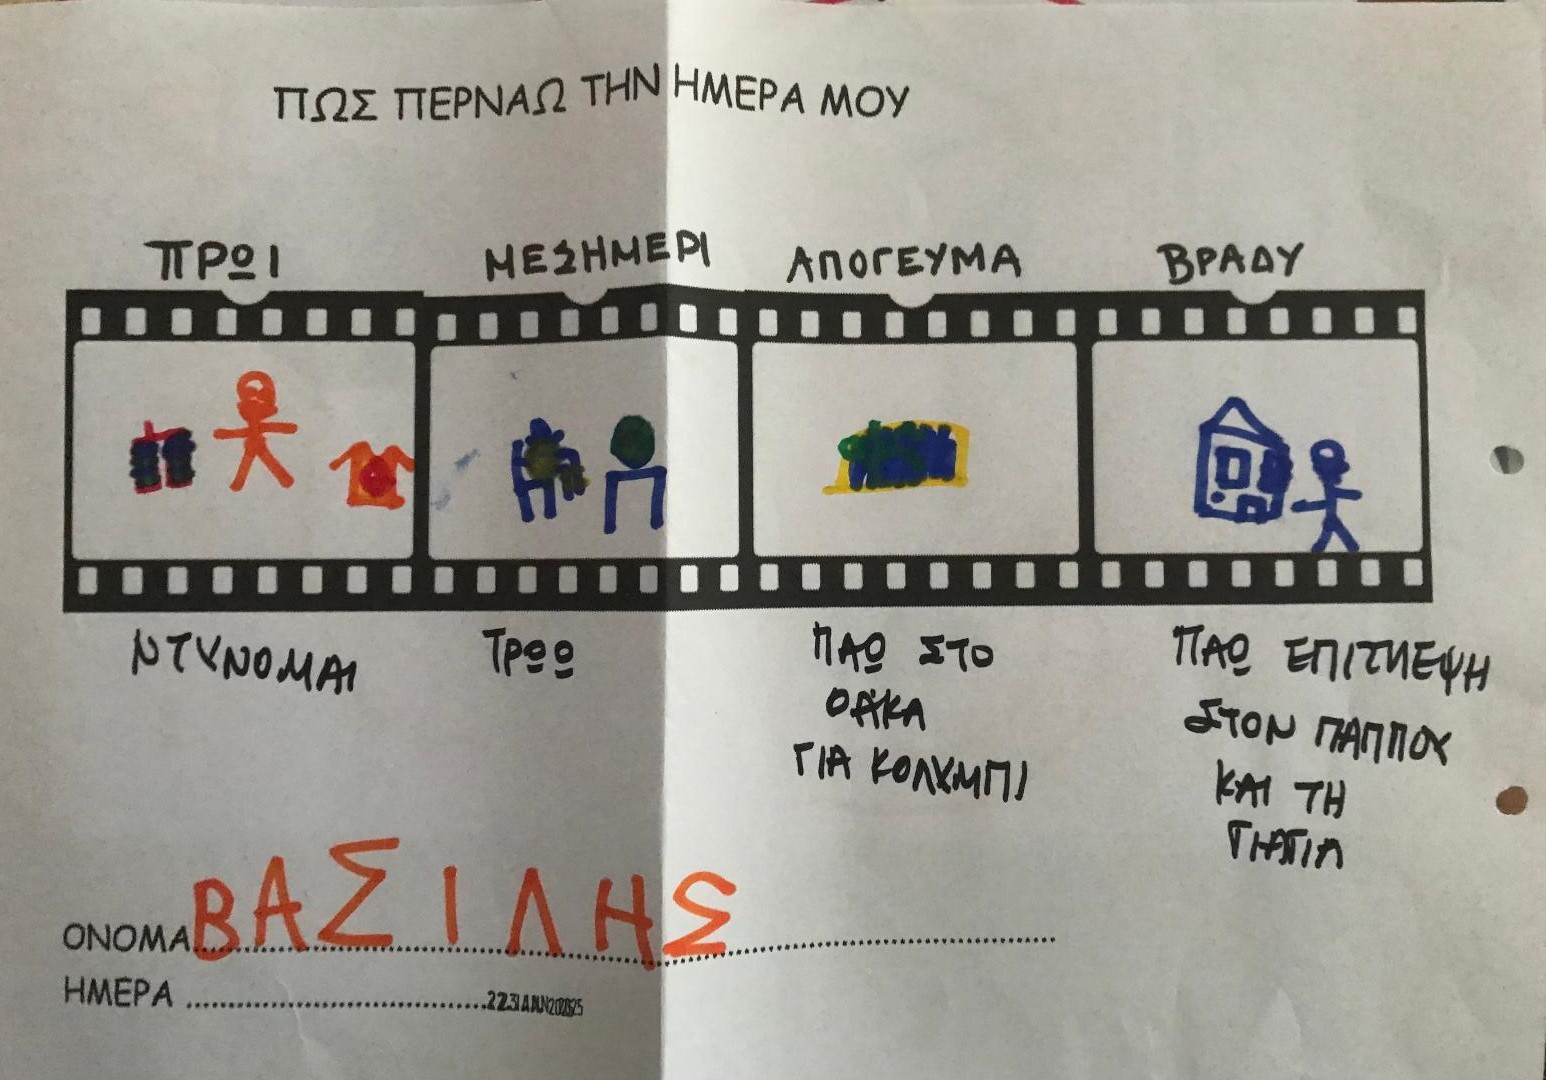 ΠΩΣ ΠΕΡΝΑΩ ΤΗΝ ΗΜΕΡΑ ΜΟΥ
ΠΡΩΙ ΜΕΣΗΜΕΡΙ ΑΠΟΓΕΥΜΑ ΒΡΑΔΥ
ΝΤΥΝΟΜΑΙ ΤΡΩΩ ΠΑΩ ΣΤΟ ΠΑΩ ΕΠΙΣΚΕΨΗ
ΟΑΚΑ ΣΤΟΝ ΠΑΠΠΟΥ
ΓΙΑ ΚΟΛΥΜΠΙ ΚΑΙ ΤΗ
ΓΙΑΓΙΑ
ΟΝΟΜΑ ΒΑΣΙΛΗΣ
ΗΜΕΡΑ